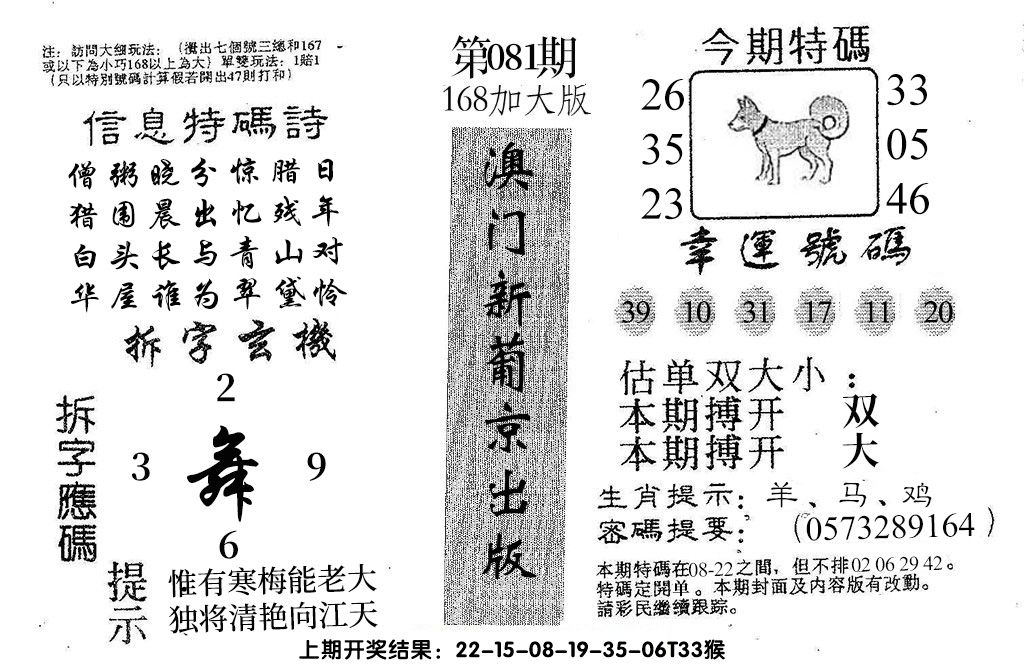 注：訪問大细玩法：（攪出七個號三總和167
或以下為小巧168以上為大）單雙玩法：1賠1
（只以特別號碼計算假若開出47則打和）
信息特碼詩
僧粥晓分惊腊日
猎围晨出忆残年
白头长与青山对
华屋谁为翠黛怜
拆字玄機
拆字應碼
2
3
舞
9
6
提示
惟有寒梅能老大
独将清艳向江天
第081期
168加大版
澳门新葡京出版
今期特碼
26
35
23
33
05
46
幸運號碼
39 10 31 17 11 20
估单双大小：
本期搏开 双
本期搏开 大
生肖提示：羊、马、鸡
密碼提要：（0573289164）
本期特碼在08-22之間，但不排02 06 29 42。
特碼定開单。本期封面及内容版有改動。
請彩民繼續跟踪。
上期开奖结果：22-15-08-19-35-06T33猴